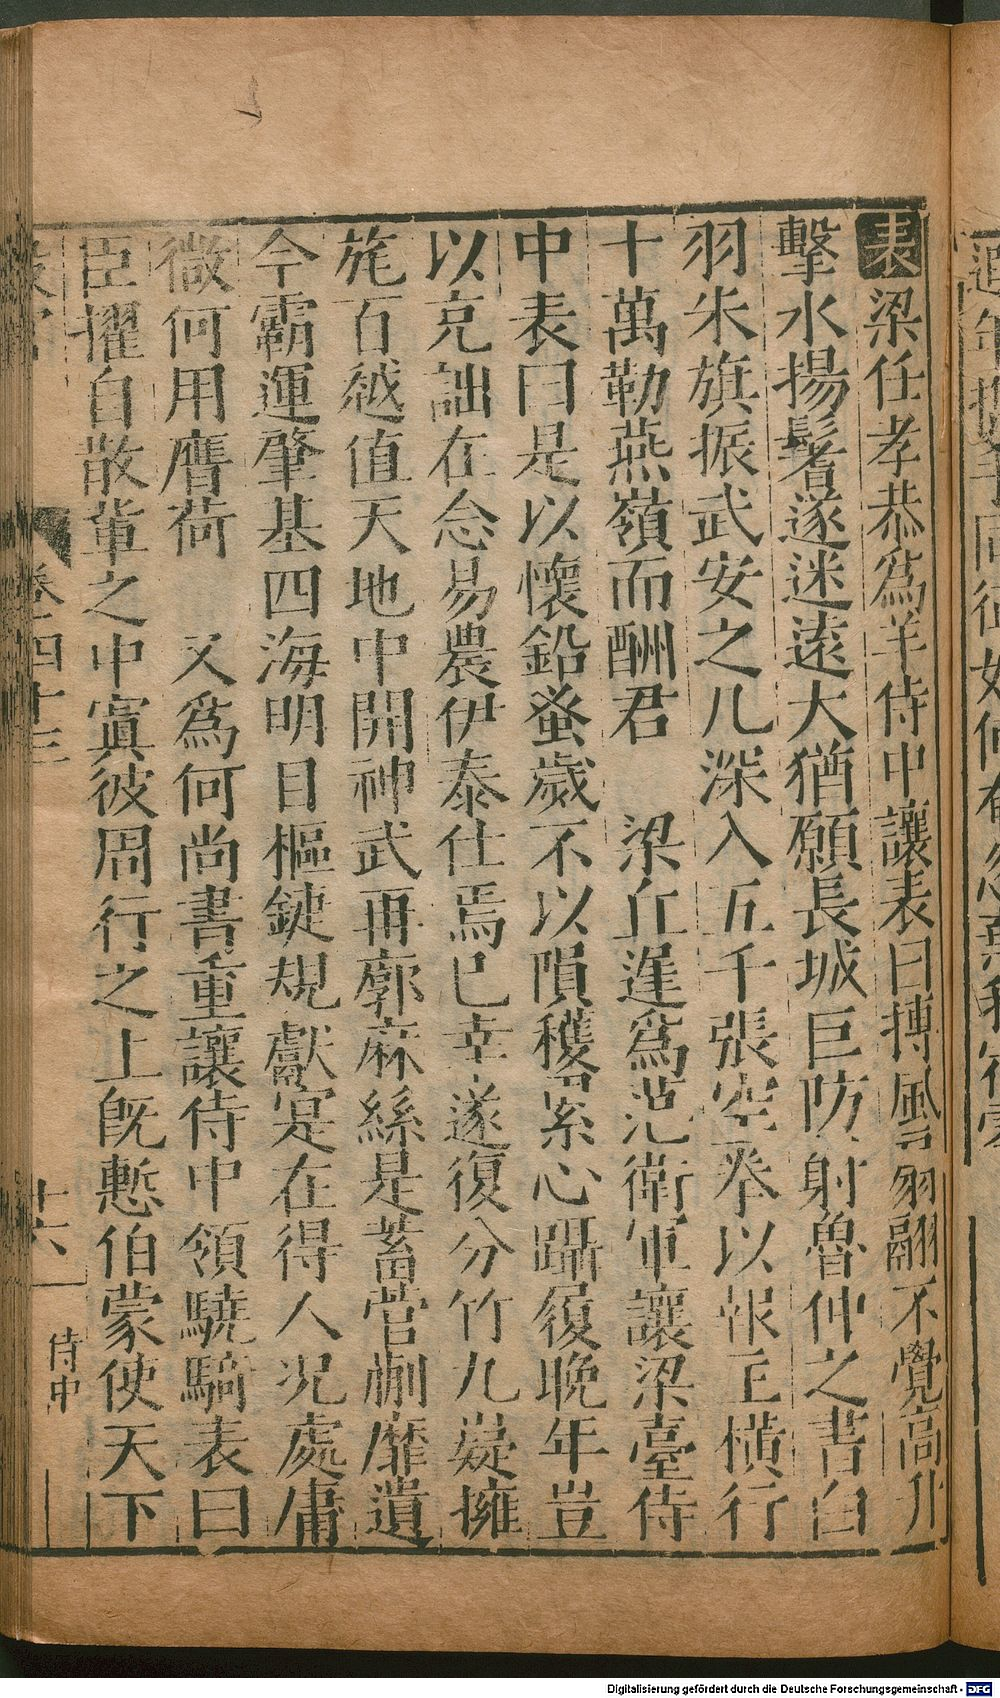 表梁任孝恭爲羊侍中讓表曰搏風豹翮不覺高升
擊水揚鬐遂迷遠大猶願長城巨防射魯仲之書白
羽朱旗振武安之几深入五千張空拳以報主橫行
十萬勒燕嶺而酬君　梁丘遲爲范衛軍讓梁臺侍
中表曰是以懷鉛蚤歲不以隕穫累心躡履晚年豈
以充詘在念易農伊泰仕焉已幸遂復分竹九嶷擁
旄百越値天地中開神武再廓麻絲是蓄菅蒯靡遺
今霸運肇基四海明目樞鍵規獻寔在得人况處庸
微何用膺荷　又爲何尚書重讓侍中領驍騎表曰
臣擢自散軰之中寘彼周行之上旣慙伯蒙使天下
卷四十三
十六
侍中
Digitalisierung gefördert durch die Deutsche Forschungsgemeinschaft - DFG